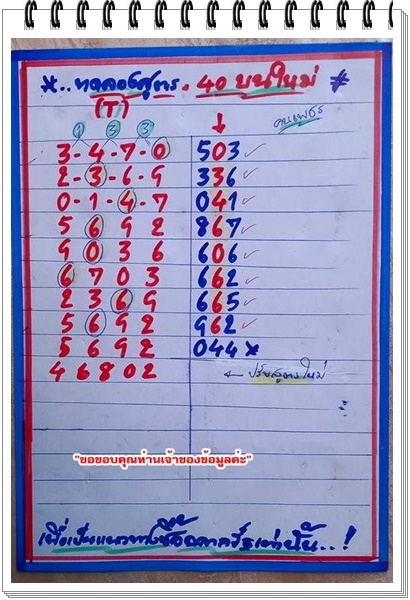 *..ทดลองสูตร. 40 บนใหม่ *
(T)
1 3 3
3-4-7-0 503 ✓
2-3-6-9 336 ✓
0-1-4-7 041 ✓
5 6 9 2 867 ✓
9 0 3 6 606 ✓
6 7 0 3 662 ✓
2 3 6 9 665 ✓
5 6 9 2 962 ✓
5 6 9 2 044 *
4 6 8 0 2 ← ปรับสูตรใหม่
"ขอขอบคุณท่านเจ้าของข้อมูลค่ะ"
เพื่อเป็นแนวทางซื้อสลากรัฐเท่านั้น..!